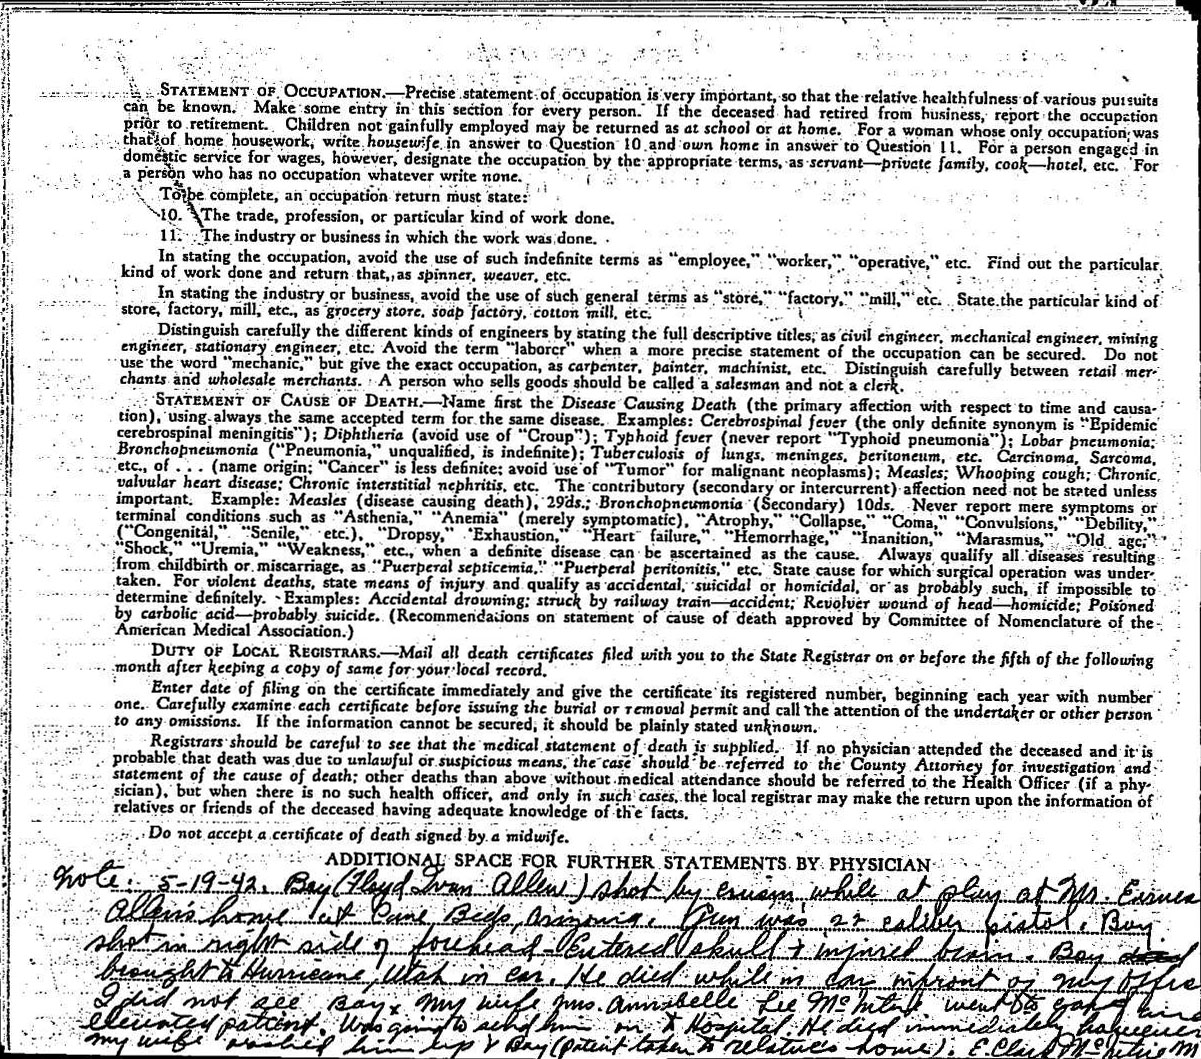 STATEMENT OF OCCUPATION.—Precise statement of occupation is very important, so that the relative healthfulness of various pursuits
can be known. Make some entry in this section for every person. If the deceased had retired from business, report the occupation
prior to retirement. Children not gainfully employed may be returned as at school or at home. For a woman whose only occupation was
that of home housework, write housewife in answer to Question 10 and own home in answer to Question 11. For a person engaged in
domestic service for wages, however, designate the occupation by the appropriate terms, as servant—private family, cook—hotel, etc. For
a person who has no occupation whatever write none.
To be complete, an occupation return must state:
10. The trade, profession, or particular kind of work done.
11. The industry or business in which the work was done.
In stating the occupation, avoid the use of such indefinite terms as "employee," "worker," "operative," etc. Find out the particular
kind of work done and return that, as spinner, weaver, etc.
In stating the industry or business, avoid the use of such general terms as "store," "factory," "mill," etc. State the particular kind of
store, factory, mill, etc., as grocery store, soap factory, cotton mill, etc.
Distinguish carefully the different kinds of engineers by stating the full descriptive titles, as civil engineer, mechanical engineer, mining
engineer, stationary engineer, etc. Avoid the term "laborer" when a more precise statement of the occupation can be secured. Do not
use the word "mechanic," but give the exact occupation, as carpenter, painter, machinist, etc. Distinguish carefully between retail mer-
chants and wholesale merchants. A person who sells goods should be called a salesman and not a clerk.
STATEMENT OF CAUSE OF DEATH.—Name first the Disease Causing Death (the primary affection with respect to time and causa-
tion), using always the same accepted term for the same disease. Examples: Cerebrospinal fever (the only definite synonym is "Epidemic
cerebrospinal meningitis"); Diphtheria (avoid use of "Croup"); Typhoid fever (never report "Typhoid pneumonia"); Lobar pneumonia;
Bronchopneumonia ("Pneumonia," unqualified, is indefinite); Tuberculosis of lungs, meninges, peritoneum, etc. Carcinoma, Sarcoma,
etc., of . . . (name origin; "Cancer" is less definite; avoid use of "Tumor" for malignant neoplasms); Measles; Whooping cough; Chronic
valvular heart disease; Chronic interstitial nephritis, etc. The contributory (secondary or intercurrent) affection need not be stated unless
important. Example: Measles (disease causing death), 29ds.; Bronchopneumonia (Secondary) 10ds. Never report mere symptoms or
terminal conditions such as "Asthenia," "Anemia" (merely symptomatic), "Atrophy," "Collapse," "Coma," "Convulsions," "Debility,"
("Congenital," "Senile," etc.), "Dropsy," "Exhaustion," "Heart failure," "Hemorrhage," "Inanition," "Marasmus," "Old age,"
"Shock," "Uremia," "Weakness," etc., when a definite disease can be ascertained as the cause. Always qualify all diseases resulting
from childbirth or miscarriage, as "Puerperal septicemia," "Puerperal peritonitis," etc. State cause for which surgical operation was under-
taken. For violent deaths, state means of injury and qualify as accidental, suicidal or homicidal, or as probably such, if impossible to
determine definitely. Examples: Accidental drowning; struck by railway train—accident; Revolver wound of head—homicide; Poisoned
by carbolic acid—probably suicide. (Recommendations on statement of cause of death approved by Committee of Nomenclature of the
American Medical Association.)
DUTY OF LOCAL REGISTRARS.—Mail all death certificates filed with you to the State Registrar on or before the fifth of the following
month after keeping a copy of same for your local record.
Enter date of filing on the certificate immediately and give the certificate its registered number, beginning each year with number
one. Carefully examine each certificate before issuing the burial or removal permit and call the attention of the undertaker or other person
to any omissions. If the information cannot be secured, it should be plainly stated unknown.
Registrars should be careful to see that the medical statement of death is supplied. If no physician attended the deceased and it is
probable that death was due to unlawful or suspicious means, the case should be referred to the County Attorney for investigation and
statement of the cause of death; other deaths than above without medical attendance should be referred to the Health Officer (if a phy-
sician), but when there is no such health officer, and only in such cases, the local registrar may make the return upon the information of
relatives or friends of the deceased having adequate knowledge of the facts.
Do not accept a certificate of death signed by a midwife.
ADDITIONAL SPACE FOR FURTHER STATEMENTS BY PHYSICIAN
Note: 5-19-42. Boy (Floyd Ivan Allen) shot by cousin while at play at Mr.
Allen's home at Cane Beds, Arizona. Gun was 22 caliber pistol. Boy
shot in right side of forehead - Entered skull & injured brain. Boy
brought to Hurricane, Utah in car. He died while in car infront of my office
I did not see Boy. My wife Mrs. Annabelle Lee McIntire went to
patient. Was going to send him on to Hospital. He died immediately however
my wife washed him up & Boy (patient taken to relatives home).